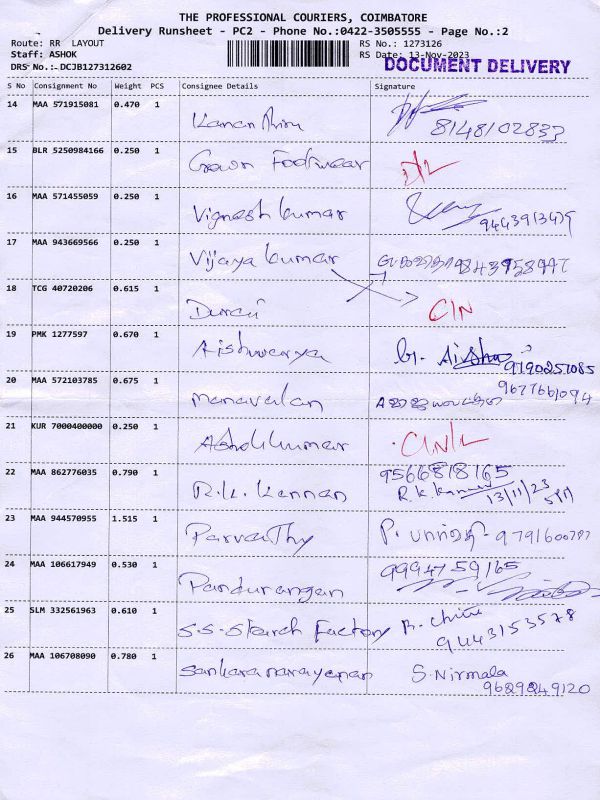 THE PROFESSIONAL COURIERS, COIMBATORE
Delivery Runsheet - PC2 - Phone No.:0422-3505555 - Page No.:2
Route: RR LAYOUT RS No.: 1273126
Staff: ASHOK RS Date: 13-Nov-2023
DRS No.:-DCJB127312602 DOCUMENT DELIVERY
S No Consignment No Weight PCS Consignee Details Signature
14 MAA 571915081 0.470 1
8148102833
15 BLR 5250984166 0.250 1 Crown Footwear
16 MAA 571455059 0.250 1 Vignesh kumar
17 MAA 943669566 0.250 1 Vijaya kumar
18 TCG 40720206 0.615 1 CIN
19 PMK 1277597 0.670 1 Aishwarya 9190251085
20 MAA 572103785 0.675 1 Manavalan 9677661094
21 KUR 7000400000 0.250 1 Ashok kumar
22 MAA 862776035 0.790 1 R.K. Kannan 9566818165
R.K. 13/11/23
23 MAA 944570955 1.515 1 Parvathy P.
24 MAA 106617949 0.530 1 Pandurangan 9994759165
25 SLM 332561963 0.610 1 S.S. Starch Factory
9443153578
26 MAA 106708090 0.780 1 Sankaranarayanan S. Nirmala
9629849120